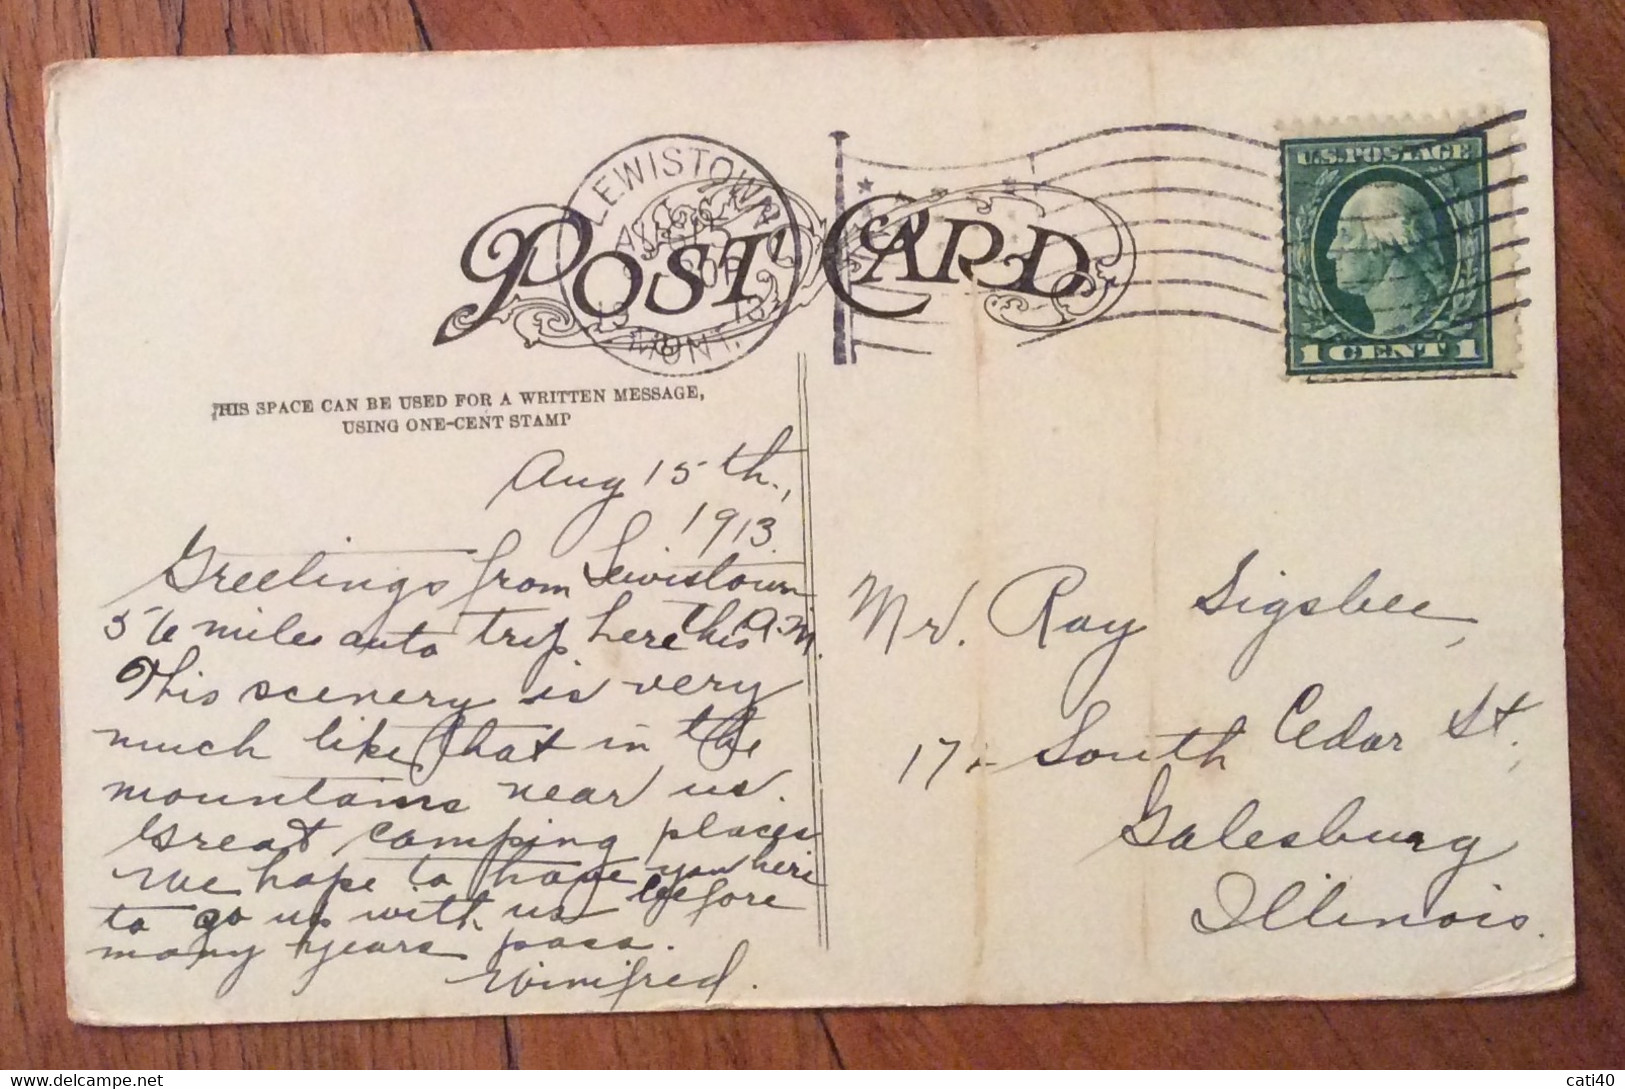 POST CARD
LEWISTOWN
MONT.
U.S. POSTAGE
1 CENT 1
THIS SPACE CAN BE USED FOR A WRITTEN MESSAGE,
USING ONE-CENT STAMP
Aug 15th.,
1913.
Greetings from Lewistown
56 mile auto trip here this A.M.
This scenery is very
much like that in the
mountains near us.
Great camping places
We hope to have you here
to go up with us before
many years pass.
Winifred.
Mr. Ray Sigsbee,
South Cedar St.,
Galesburg
Illinois.
cati40